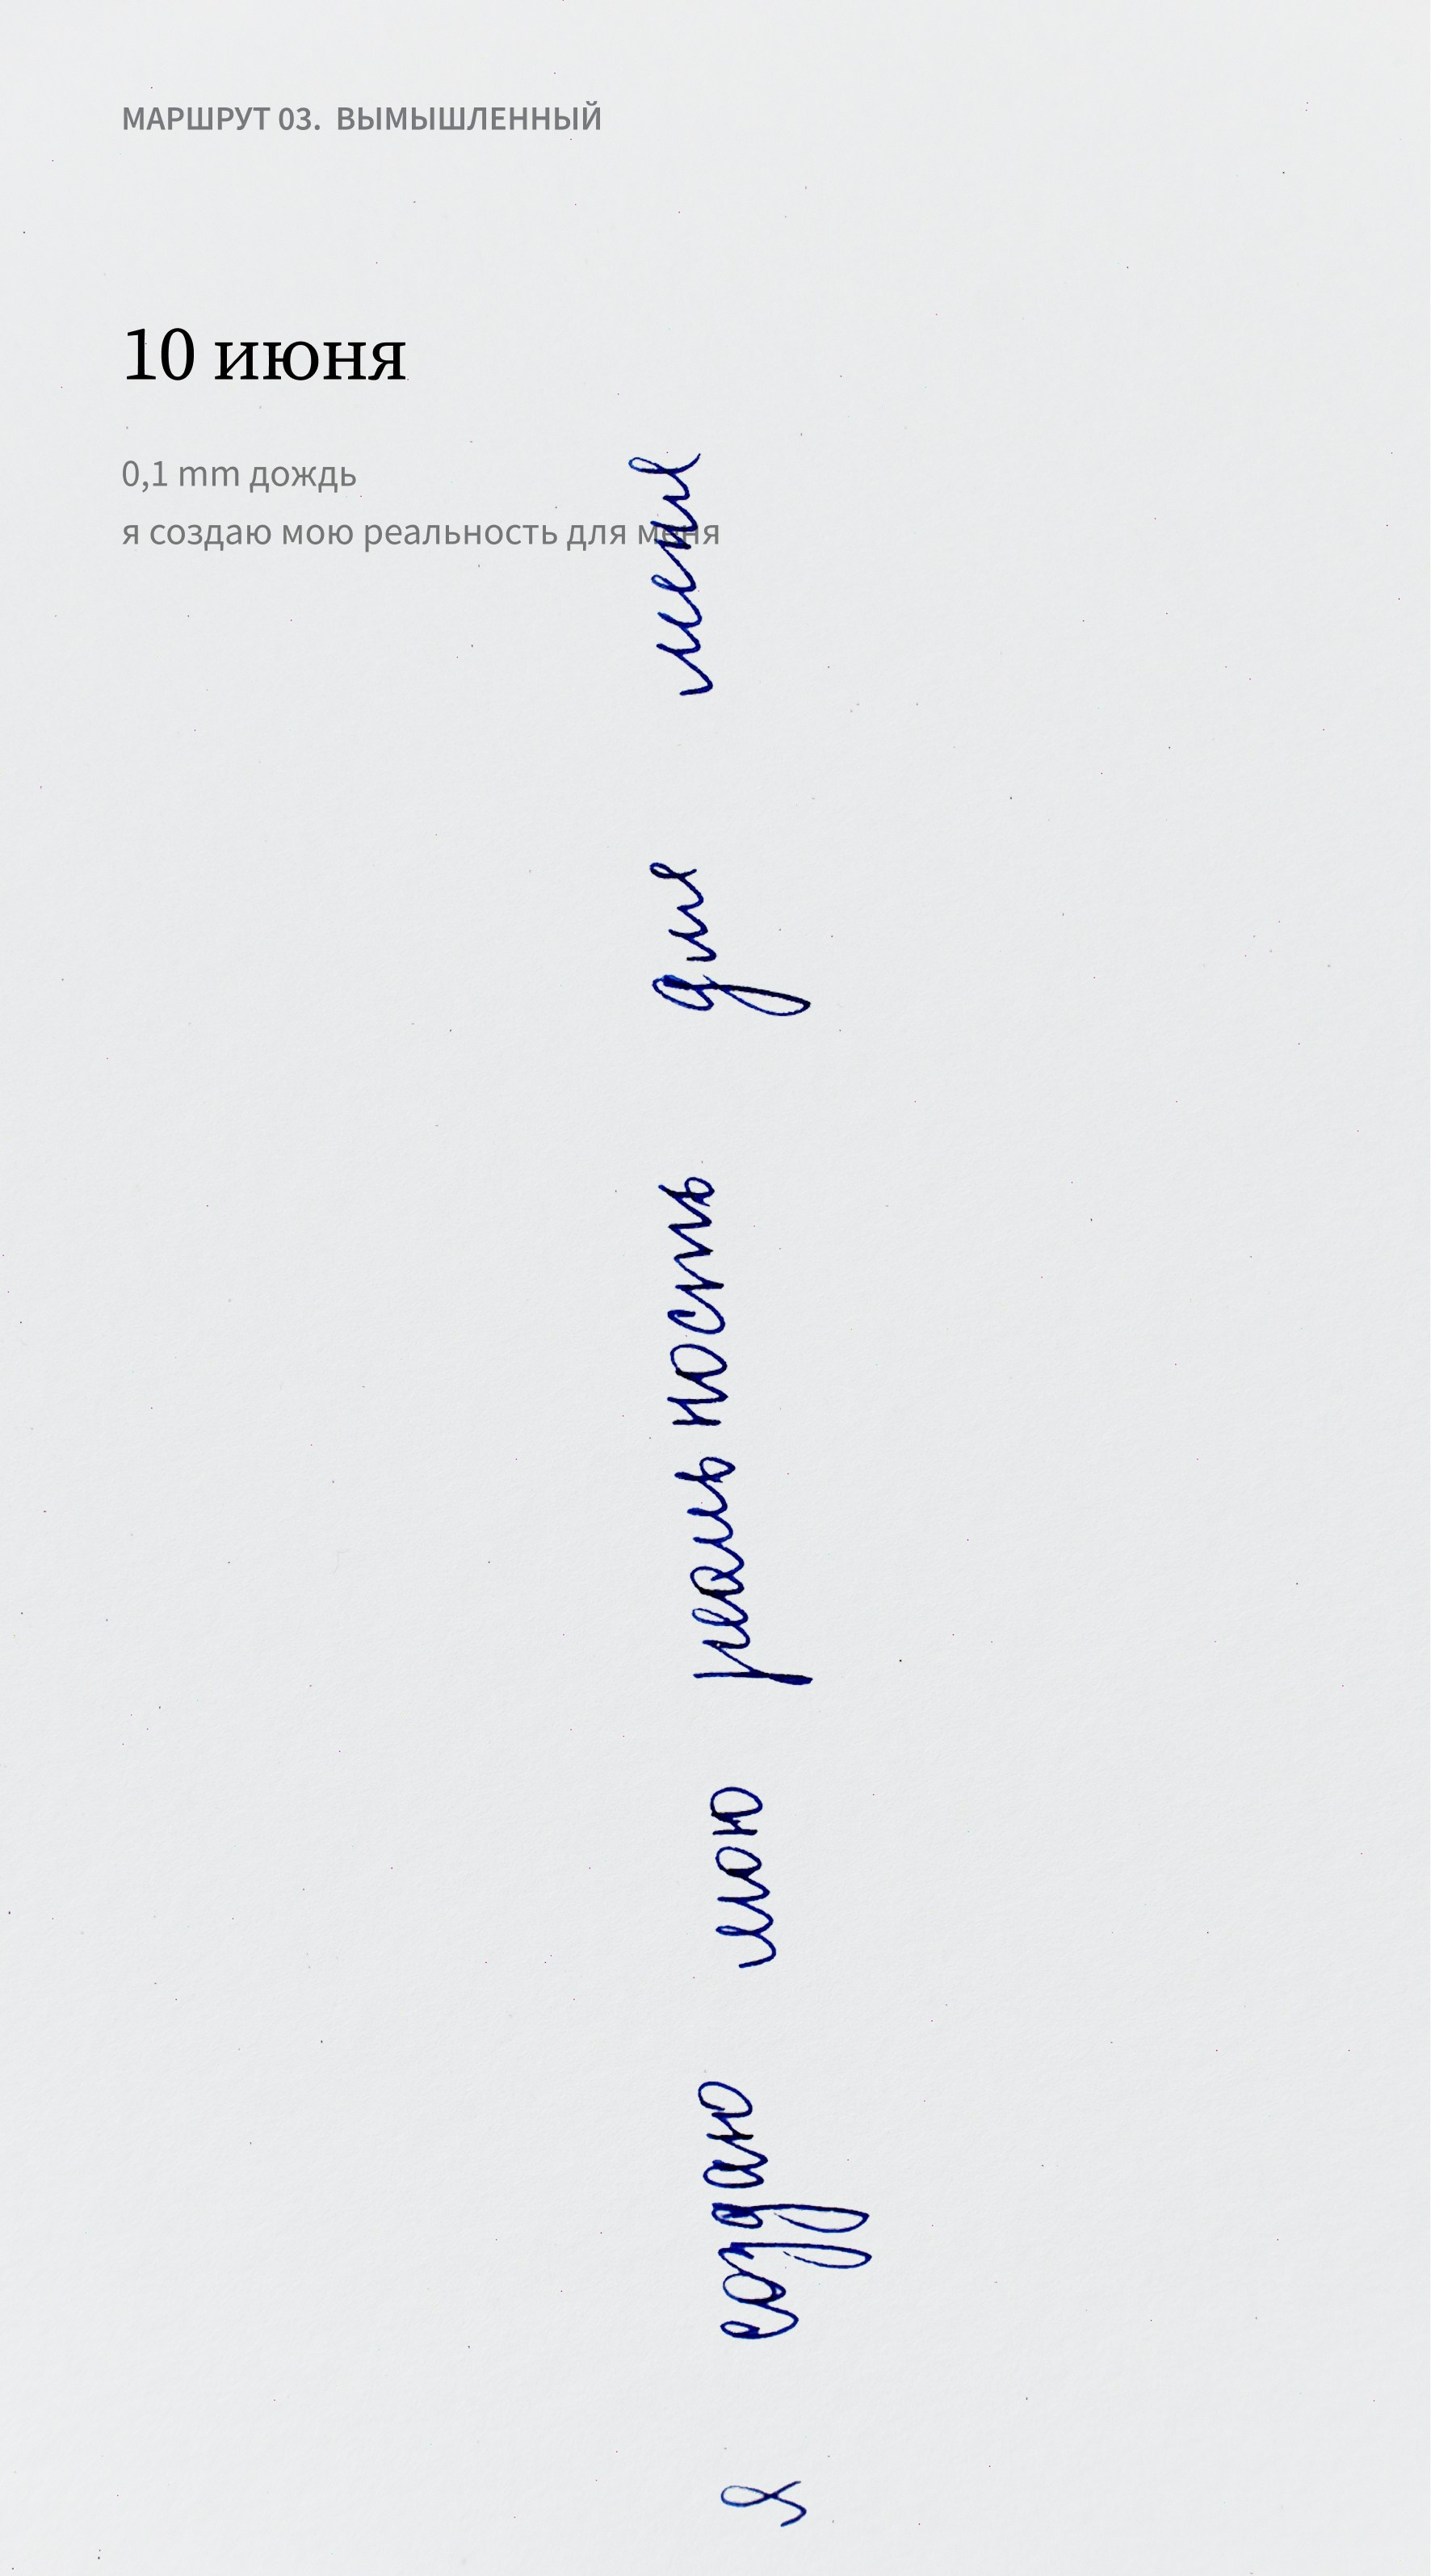 МАРШРУТ 03. ВЫМЫШЛЕННЫЙ
10 июня
0,1 mm дождь
я создаю мою реальность для меня
я создаю мою реальность для меня